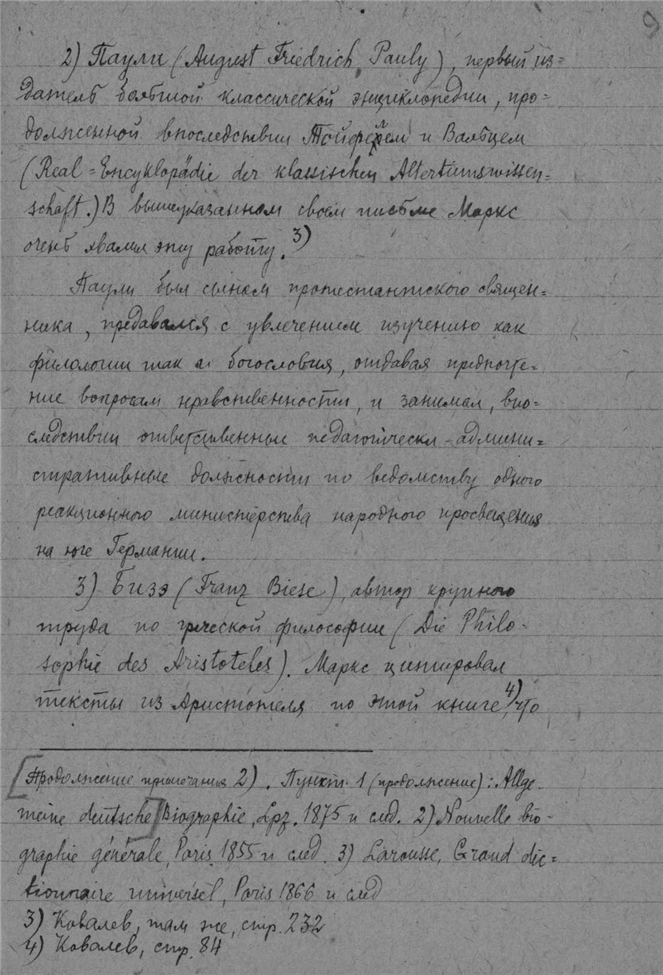 9
2) Паули (August Friedrich Pauly), первый из=
датель большой классической энциклопедии, про=
долженной впоследствии Тойфелем и Вальцем
(Real=Encyklopädie der klassischen Altertumswissen=
schaft.) В вышеуказанном своем письме Маркс
очень хвалил эту работу. 3)
Паули был сыном протестантского священ=
ника, предавался с увлечением изучению как
филологии так и богословия, отдавая предпочте=
ние вопросам нравственности, и занимал, впо=
следствии ответственные педагогическо-админи=
стративные должности по ведомству одного
реакционного министерства народного просвещения
на юге Германии.
3) Бизэ (Franz Biese), автор крупного
труда по греческой философии (Die Philo-
sophie des Aristoteles). Маркс цитировал
тексты из Аристотеля по этой книге, 4) что
[Продолжение примечания 2). Пункт 1 (продолжение): Allge-
meine deutsche] Biographie, Lpz. 1875 и след. 2) Nouvelle bio-
graphie générale, Paris 1855 и след. 3) Larousse, Grand dic=
tionnaire universel, Paris 1866 и след
3) Ковалев, там же, стр. 232
4) Ковалев, стр. 84